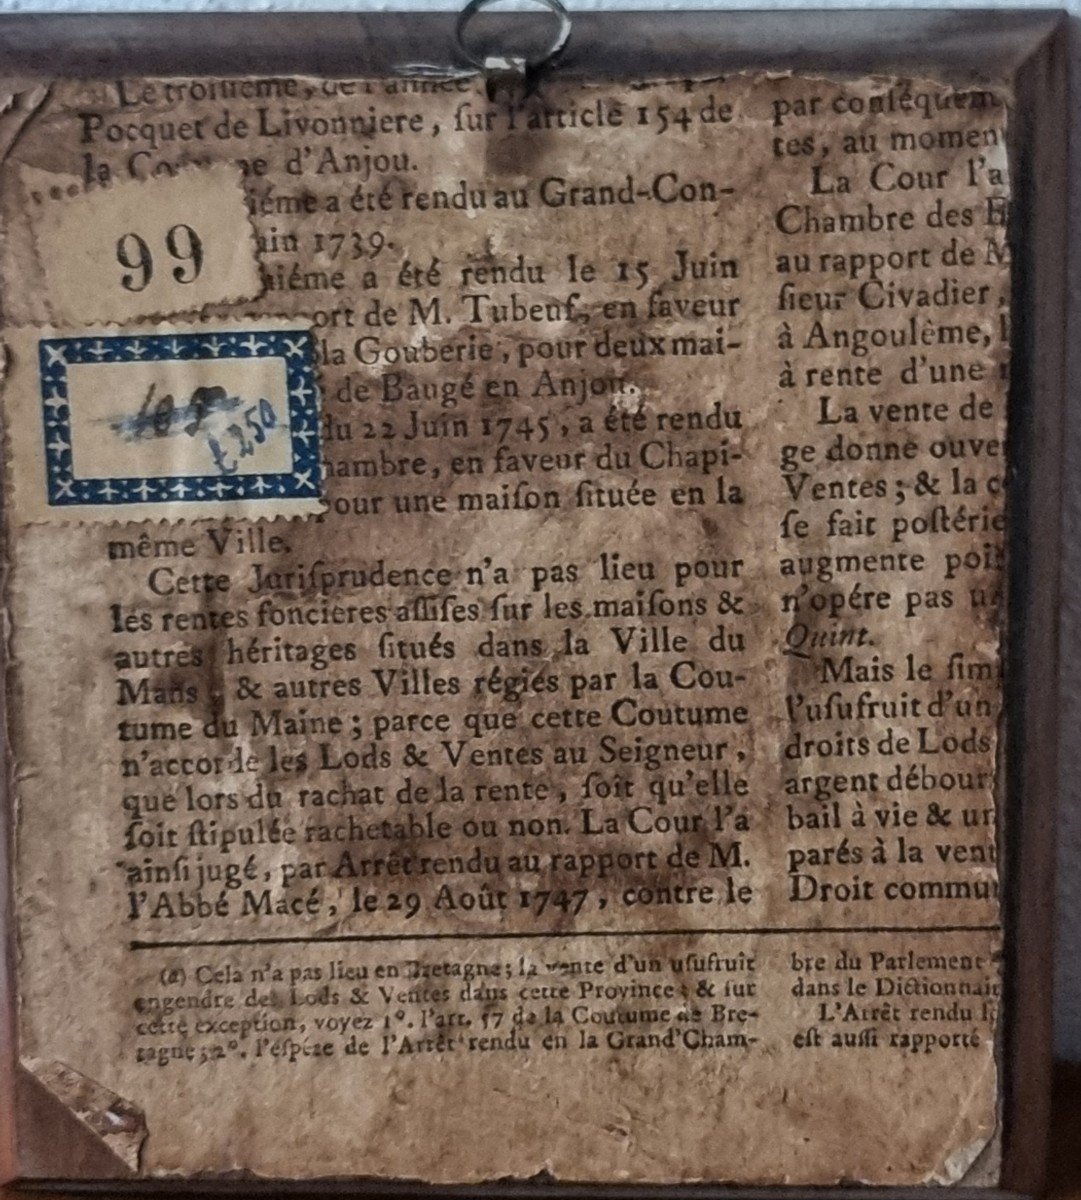 Le troisieme, de l'année
Pocquet de Livonniere, sur l'article 154 de
la d'Anjou.
iéme a été rendu au Grand-Con-
uin 1739.
iéme a été rendu le 15 Juin
ort de M. Tubeuf, en faveur
la Gouberie, pour deux mai-
de Baugé en Anjou.
du 22 Juin 1745, a été rendu
hambre, en faveur du Chapi-
pour une maiſon ſituée en la
même Ville.
Cette Juriſprudence n'a pas lieu pour
les rentes foncieres aſſiſes ſur les maiſons &
autres héritages ſitués dans la Ville du
Mans, & autres Villes régies par la Cou-
tume du Maine; parce que cette Coutume
n'accorde les Lods & Ventes au Seigneur,
que lors du rachat de la rente, ſoit qu'elle
ſoit ſtipulée rachetable ou non. La Cour l'a
ainſi jugé, par Arrêt rendu au rapport de M.
l'Abbé Macé, le 29 Août 1747, contre le
(a) Cela n'a pas lieu en Bretagne; la vente d'un uſufruit
engendre des Lods & Ventes dans cette Province; & ſur
cette exception, voyez 1º. l'art. 57 de la Coutume de Bre-
tagne; 2º. l'eſpéce de l'Arrêt rendu en la Grand'Cham-
par conſéquem
tes, au momen
La Cour l'a
Chambre des E
au rapport de M
ſieur Civadier,
à Angoulême, l
à rente d'une
La vente de
ge donne ouve
Ventes; & la c
ſe fait poſtérie
augmente poi
n'opére pas un
Quint.
Mais le ſim
l'uſufruit d'un
droits de Lods
argent débour
bail à vie & un
parés à la vent
Droit commu
bre du Parlement
dans le Dictionnair
L'Arrêt rendu l
eſt auſſi rapporté
99
£250